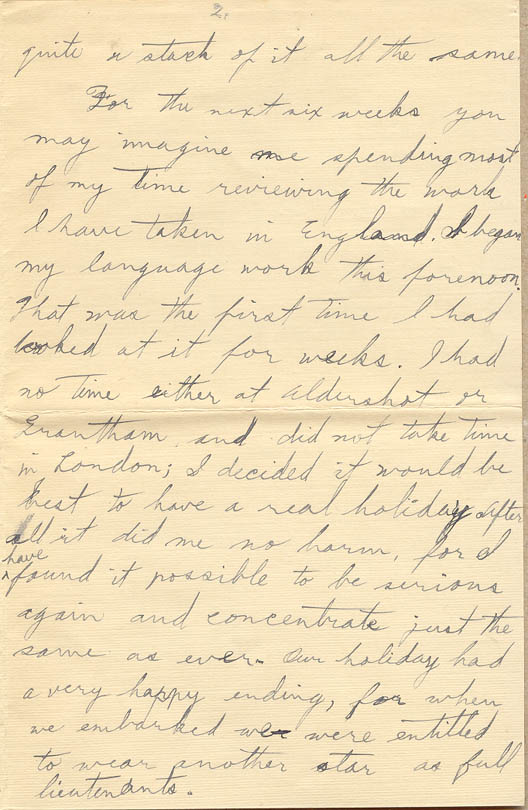 2.
quite a stack of it all the same.
For the next six weeks you
may imagine me spending most
of my time reviewing the work
I have taken in England. I began
my language work this forenoon.
That was the first time I had
looked at it for weeks. I had
no time either at Aldershot or
Grantham and did not take time
in London; I decided it would be
best to have a real holiday. After
all it did me no harm, for I
have
found it possible to be serious
again and concentrate just the
same as ever. Our holiday had
a very happy ending, for when
we embarked we were entitled
to wear another star as full
lieutenants.